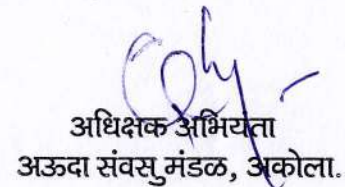 अधिक्षक अभियंता
अऊदा संवसु मंडळ, अकोला.